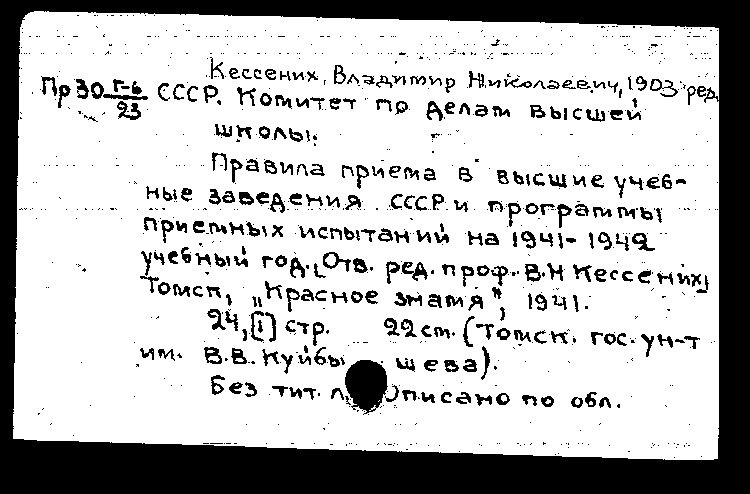 Кессених, Владимир Николаевич, 1903 ред.
Пр30 Г-6/23 СССР. Комитет по делам высшей
школы.
Правила приема в высшие учеб-
ные заведения СССР и программы
приемных испытаний на 1941-1942
учебный год. [Отв. ред. проф. В.Н Кессених]
Томск, „Красное знамя", 1941.
24, [1] стр. 22 см. (Томск. гос. ун-т
им. В.В. Куйбышева).
Без тит. л. Описано по обл.